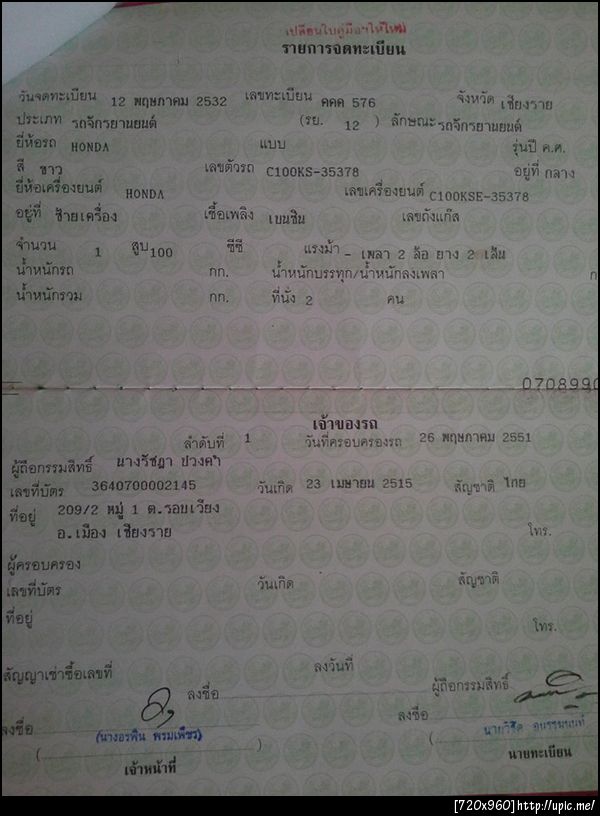 เปลี่ยนใบคู่มือฯให้ใหม่
รายการจดทะเบียน
วันจดทะเบียน 12 พฤษภาคม 2532 เลขทะเบียน คคค 576 จังหวัด เชียงราย
ประเภท รถจักรยานยนต์ (รย. 12 ) ลักษณะ รถจักรยานยนต์
ยี่ห้อรถ HONDA แบบ รุ่นปี ค.ศ.
สี ขาว เลขตัวรถ C100KS-35378 อยู่ที่ กลาง
ยี่ห้อเครื่องยนต์ HONDA เลขเครื่องยนต์ C100KSE-35378
อยู่ที่ ซ้ายเครื่อง เชื้อเพลิง เบนซิน เลขถังแก๊ส
จำนวน 1 สูบ 100 ซีซี แรงม้า - เพลา 2 ล้อ ยาง 2 เส้น
น้ำหนักรถ กก. น้ำหนักบรรทุก/น้ำหนักลงเพลา ก
น้ำหนักรวม กก. ที่นั่ง 2 คน
0708990
เจ้าของรถ
ลำดับที่ 1 วันที่ครอบครองรถ 26 พฤษภาคม 2551
ผู้ถือกรรมสิทธิ์ นางรัชฎา ปวงคำ
เลขที่บัตร 3640700002145 วันเกิด 23 เมษายน 2515 สัญชาติ ไทย
ที่อยู่ 209/2 หมู่ 1 ต.รอบเวียง
อ.เมือง เชียงราย โทร.
ผู้ครอบครอง
เลขที่บัตร วันเกิด สัญชาติ
ที่อยู่ โทร.
สัญญาเช่าซื้อเลขที่ ลงวันที่
ลงชื่อ ผู้ถือกรรมสิทธิ์
ลงชื่อ ลงชื่อ
(นางอรพิน พรมเพียร) นายวิรัต
เจ้าหน้าที่ นายทะเบียน
[720x960] http://upic.me/